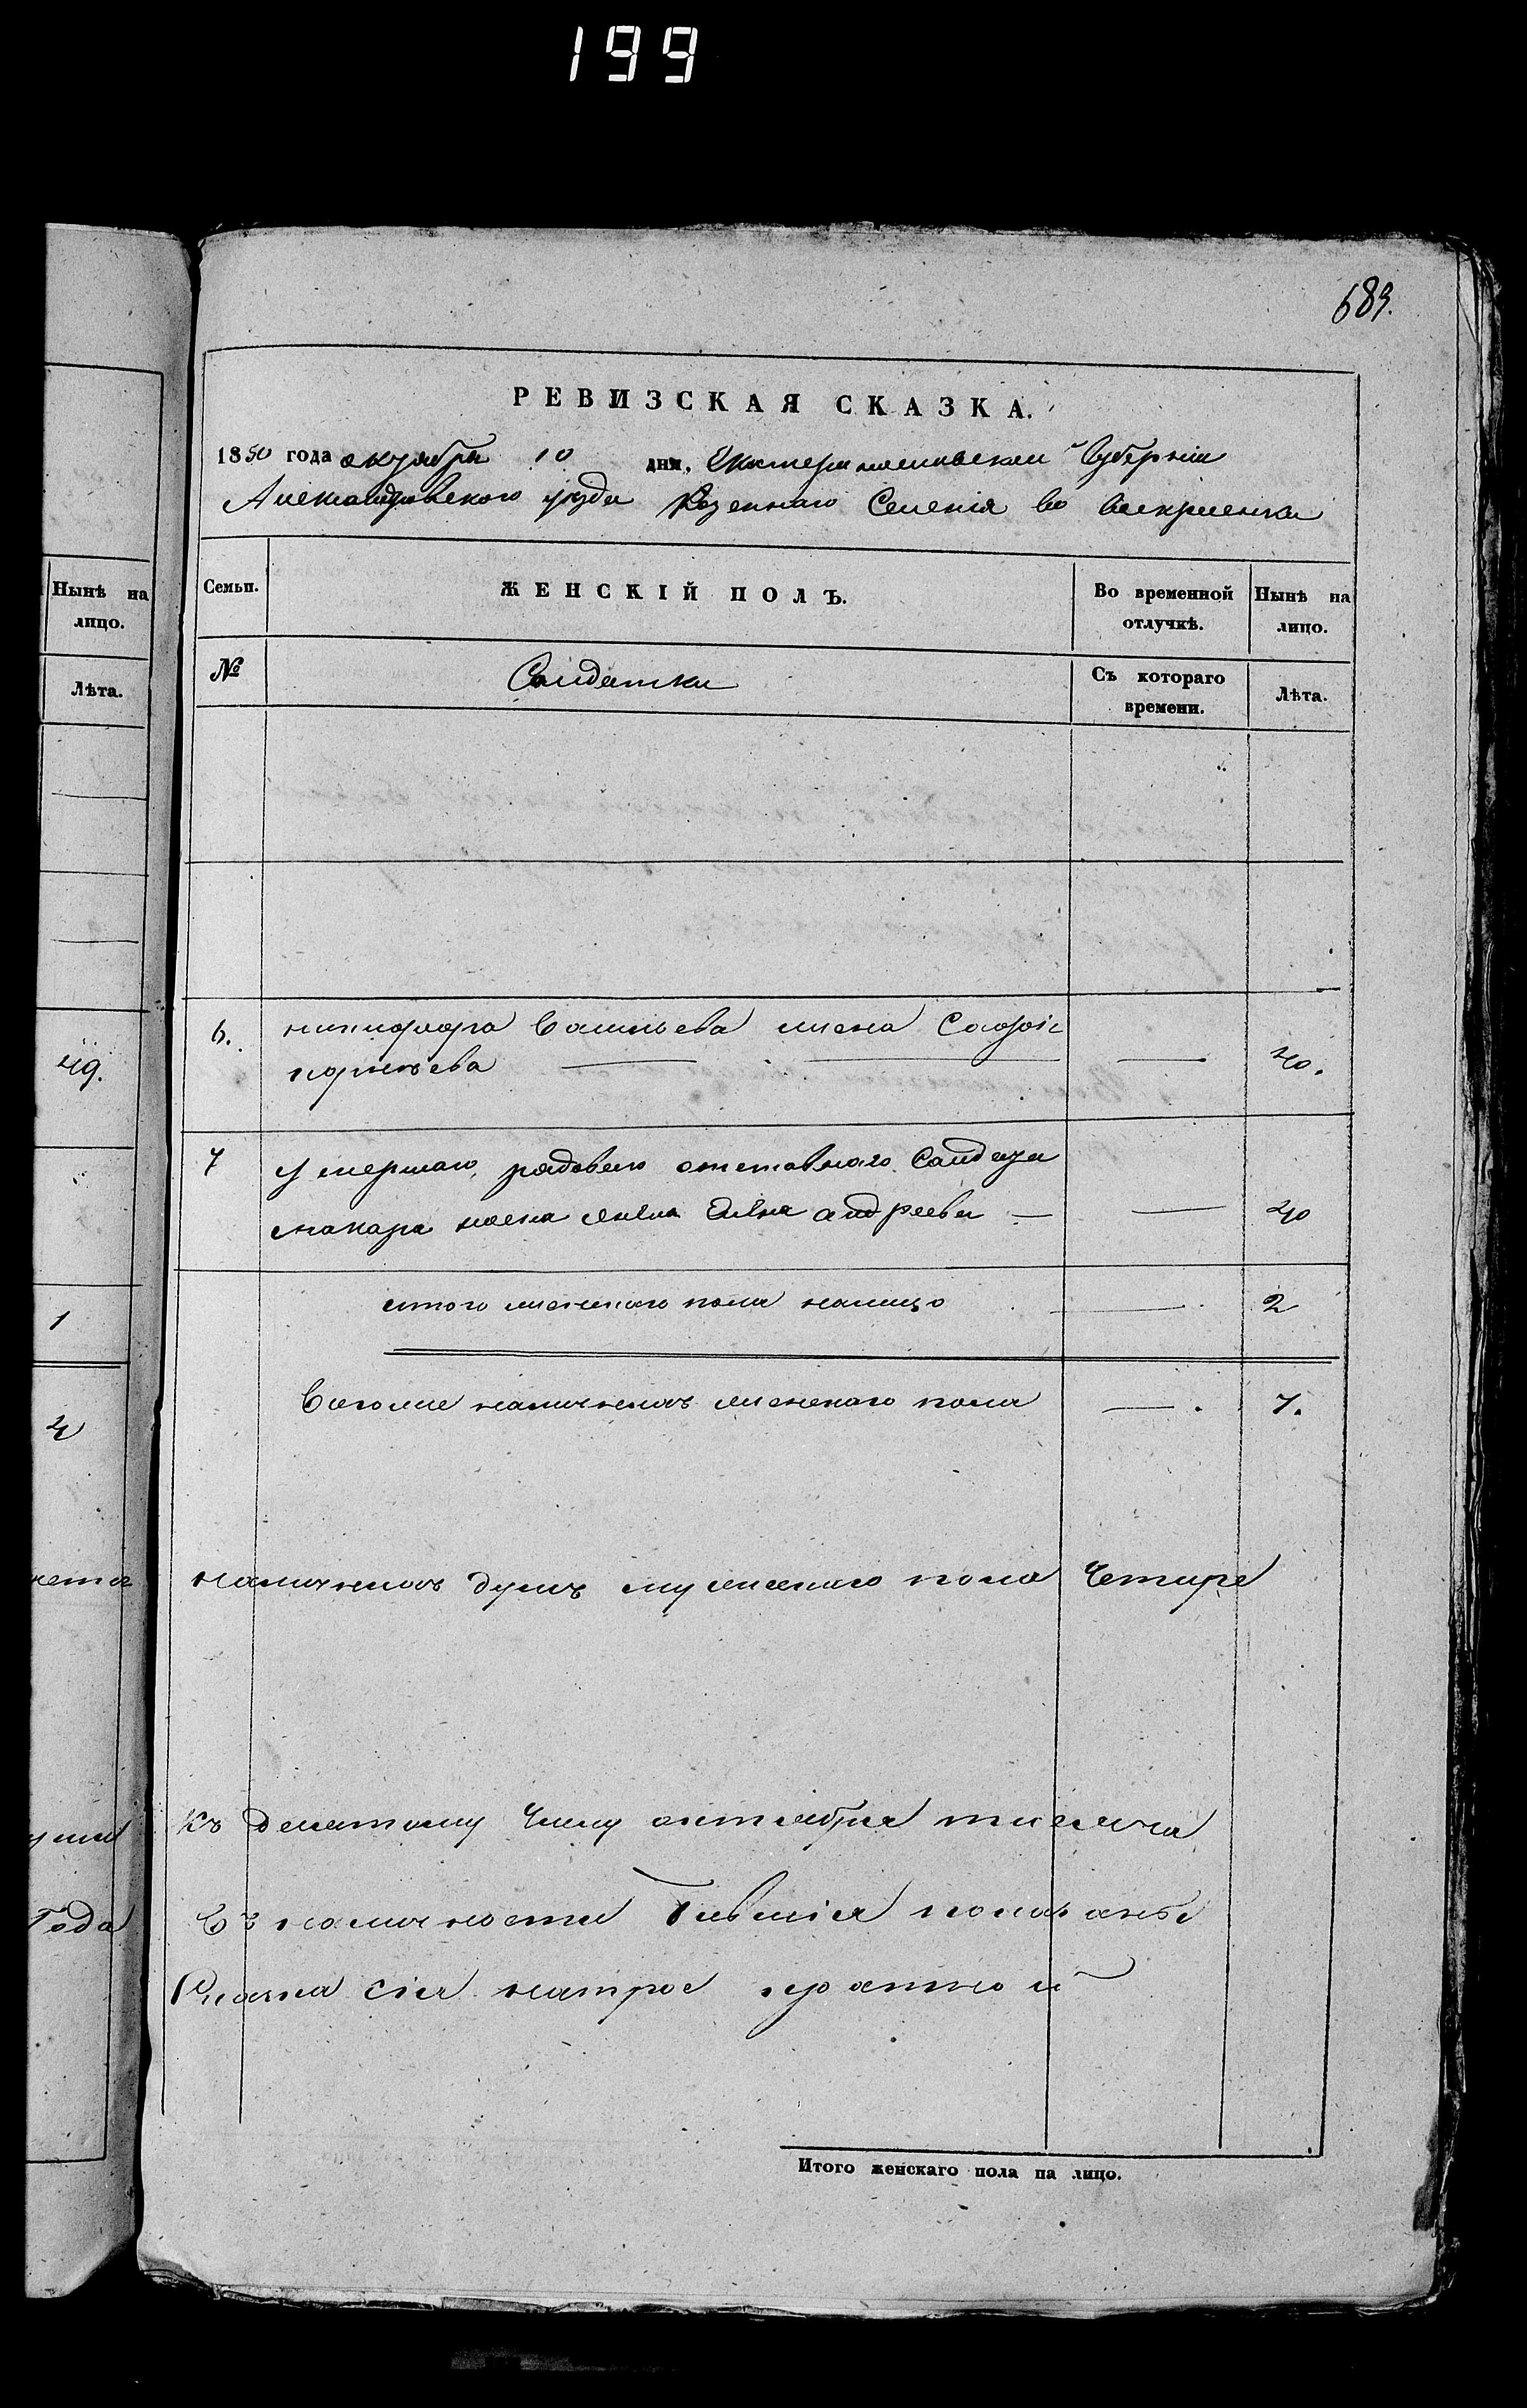 199
689.
РЕВИЗСКАЯ СКАЗКА.
1850 года октября 10 дня, Екатеринославской Губернiи
Александровского уезда Козенного Селенiя во воскресенки
Нынѣ на
лицо.
Лѣта.
49.
1
4
Года
Семьи.
ЖЕНСКІЙ ПОЛЪ.
Во временной
отлучкѣ.
Нынѣ на
лицо.
№
Солдатки
Съ котораго
времени.
Лѣта.
6. никифора Васильева жена Софiя
корнѣева — — 40.
7 умершаго рядового отставнаго Солдата
макара жена Елена андреева — — 40
итого женскаго пола налицо — 2
Вагоме наличнихъ женскаго пола — 7.
наличнихъ душъ мужескаго пола Четире
Къ десятому Числу октября тисяча
Въ наличности Бившiя показаны
Сказка сiя натрое кратной
Итого женскаго пола на лицо.